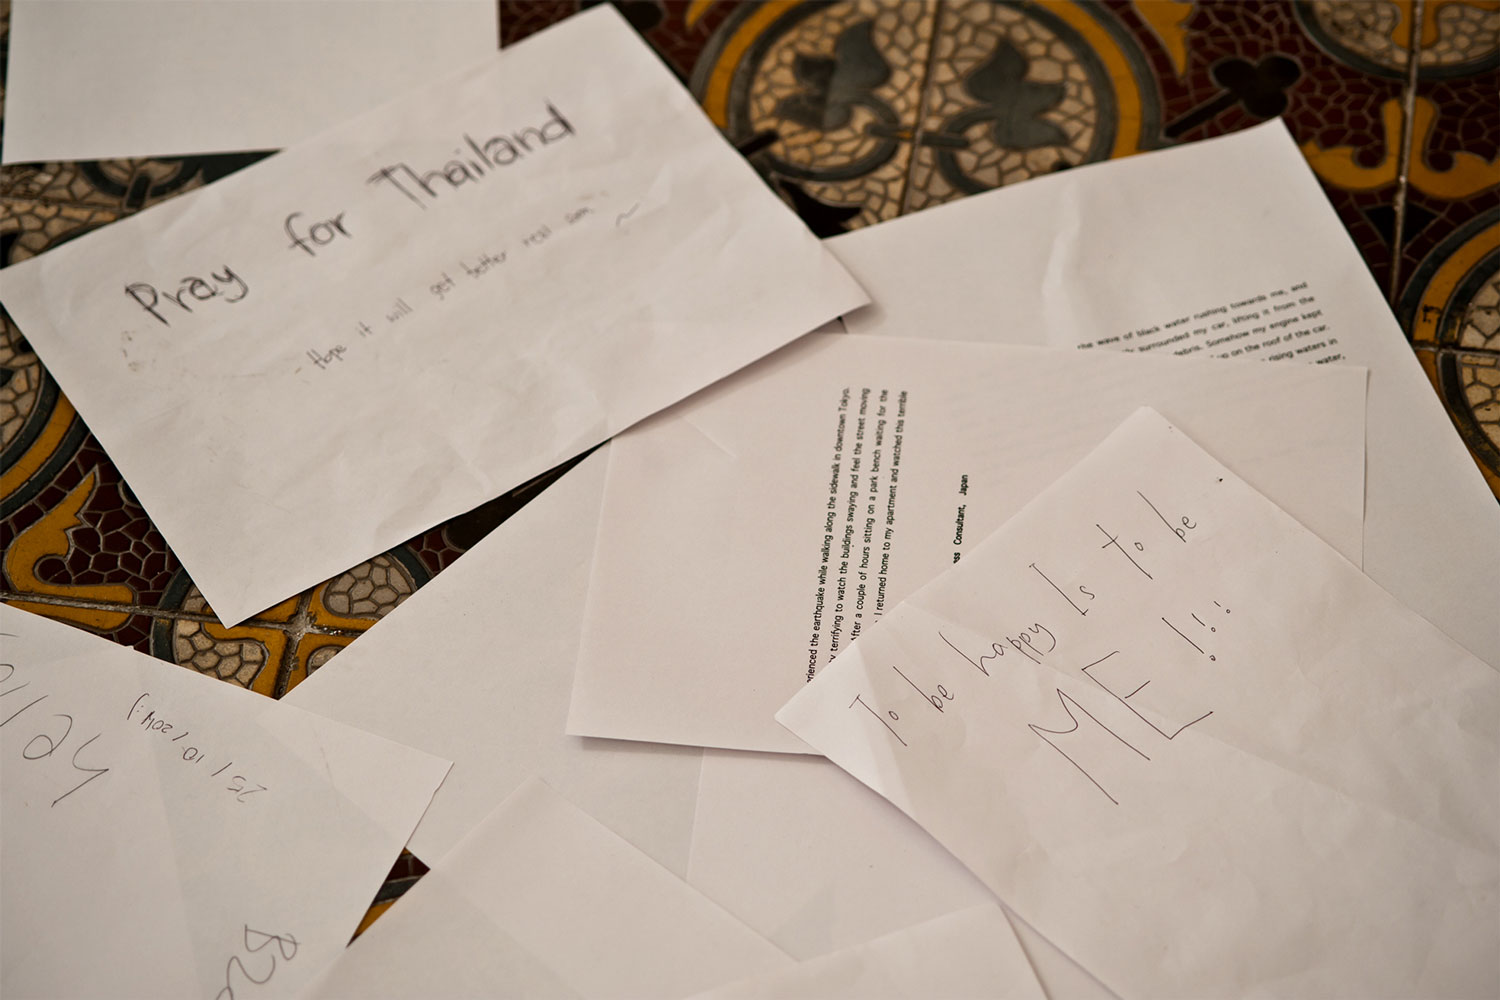 Pray for Thailand
Hope it will get better real soon
the wave of black water rushing towards me, and
surrounded my car, lifting it from the
debris. Somehow my engine kept
up on the roof of the car.
rising waters in
water,
rienced the earthquake while walking along the sidewalk in downtown Tokyo.
y terrifying to watch the buildings swaying and feel the street moving
After a couple of hours sitting on a park bench waiting for the
I returned home to my apartment and watched this terrible
ess Consultant, Japan
To be happy Is to be
ME !!!
25/10/2014 :)